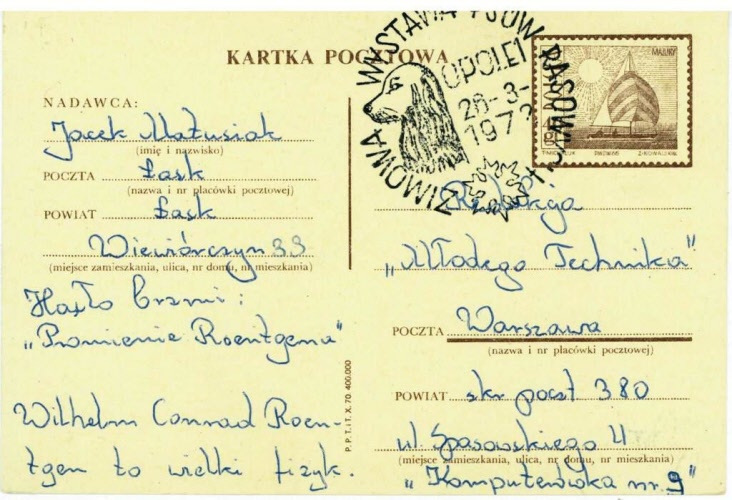 KARTKA POCZTOWA
NADAWCA:
Jacek Matusiak
(imię i nazwisko)
POCZTA Łask
(nazwa i nr placówki pocztowej)
POWIAT Łask
Wiewiórczyn 33
(miejsce zamieszkania, ulica, nr domu, nr mieszkania)
Hasło brzmi:
„Promienie Roentgena"
Wilhelm Conrad Roen-
tgen to wielki fizyk.
P. P. T. i T. X. 70. 400.000
ZIMOWA WYSTAWA PSÓW RASOWYCH
OPOLE 1
26-3-
MAZURY
Redakcja
„Młodego Technika"
POCZTA Warszawa
(nazwa i nr placówki pocztowej)
POWIAT skr poczt 380
ul. Spasowskiego 4
(miejsce zamieszkania, ulica, nr domu, nr mieszkania)
„Komputerówka nr. 9"